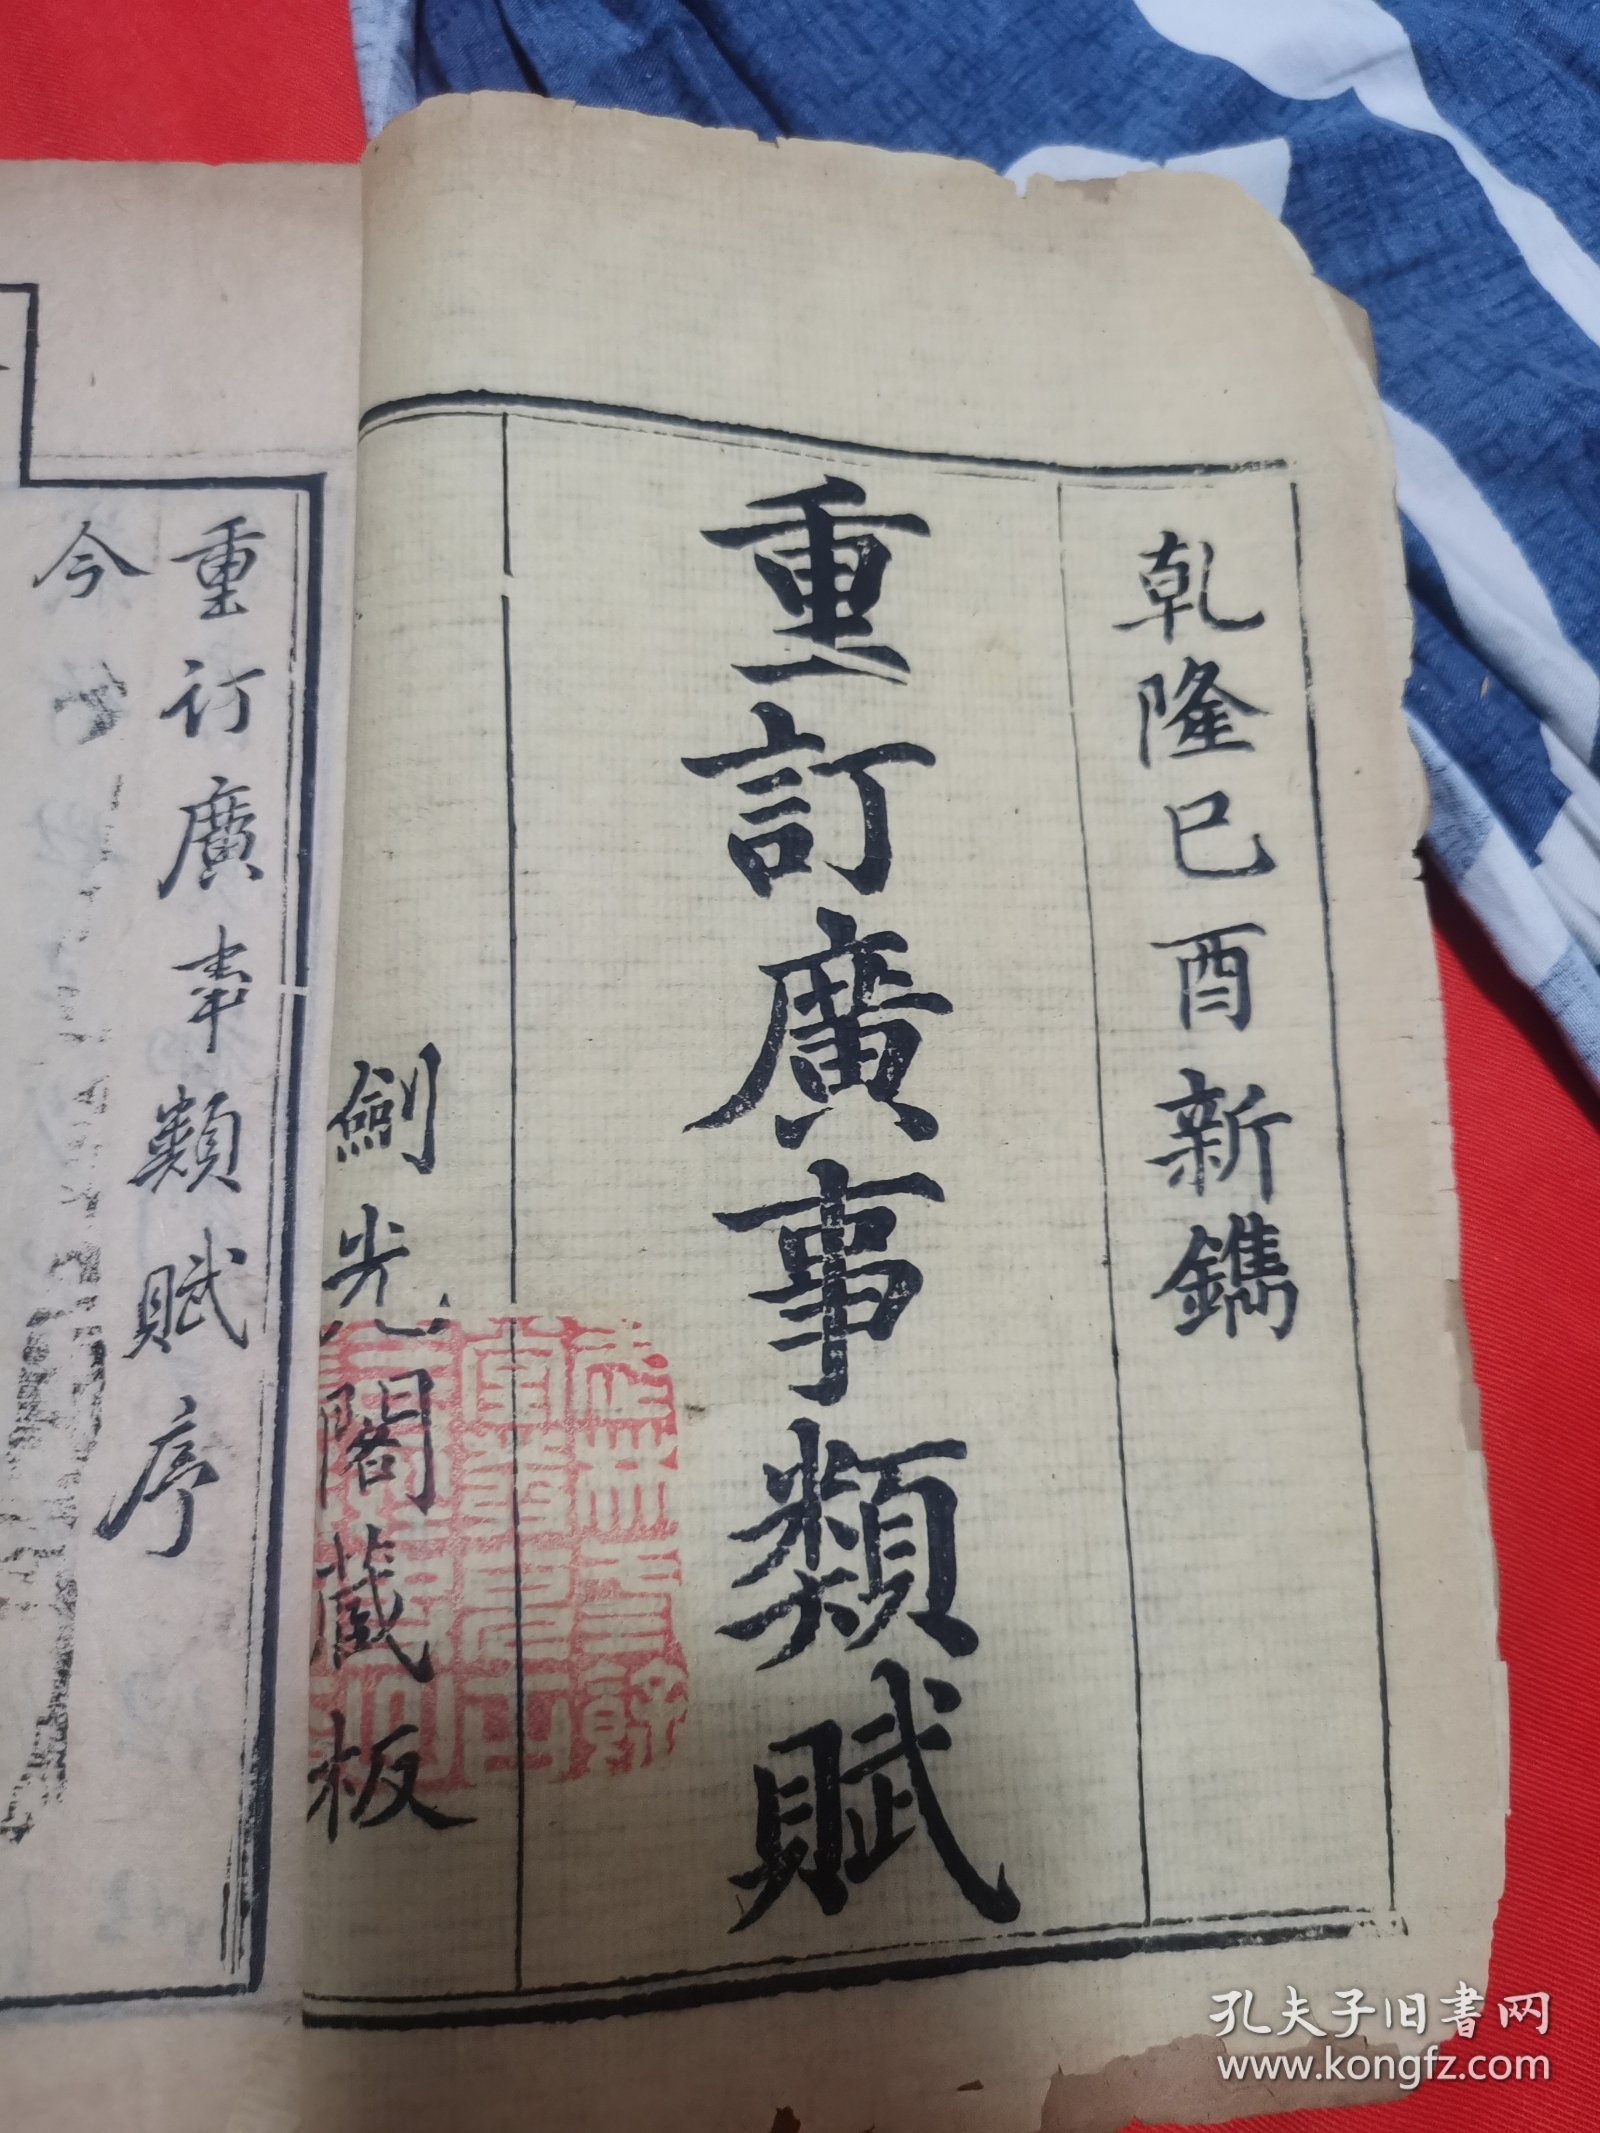 乾隆己酉新鐫
重訂廣事類賦
劍光閣藏板
重訂廣事類賦序
今
孔夫子旧書网
www.kongfz.com